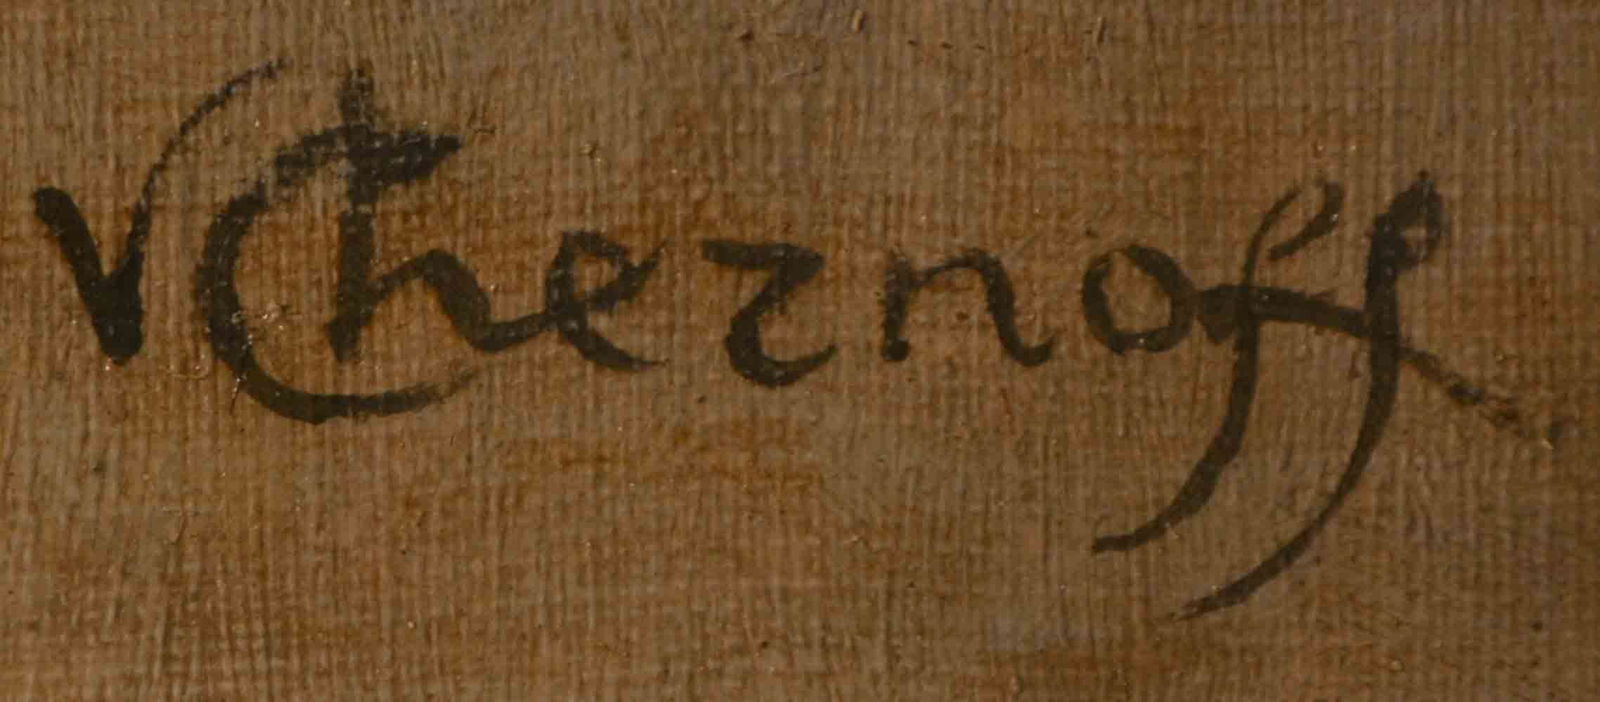 V Chernoff